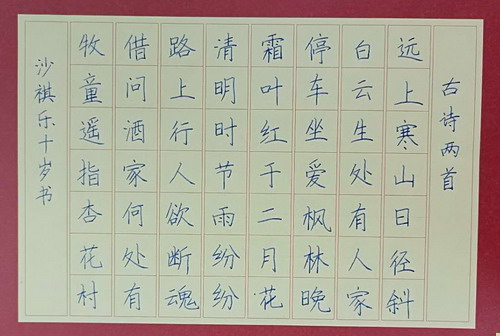 古诗两首
远上寒山日径斜
白云生处有人家
停车坐爱枫林晚
霜叶红于二月花
清明时节雨纷纷
路上行人欲断魂
借问酒家何处有
牧童遥指杏花村
沙祺乐十岁书